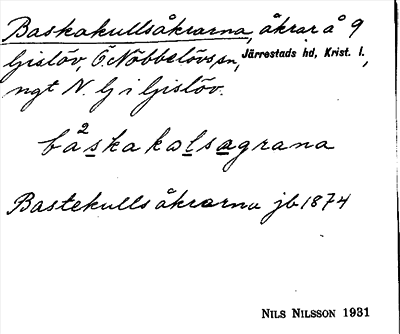 Baskakullsåkrarna, åkrar å 9
Gislöv, Ö. Nöbbelövs sn, Järrestads hd, Krist. l.,
ngt N. G i Gislöv.
2
baskakolsagrana
Bastekulls åkrarna jb 1874
NILS NILSSON 1931